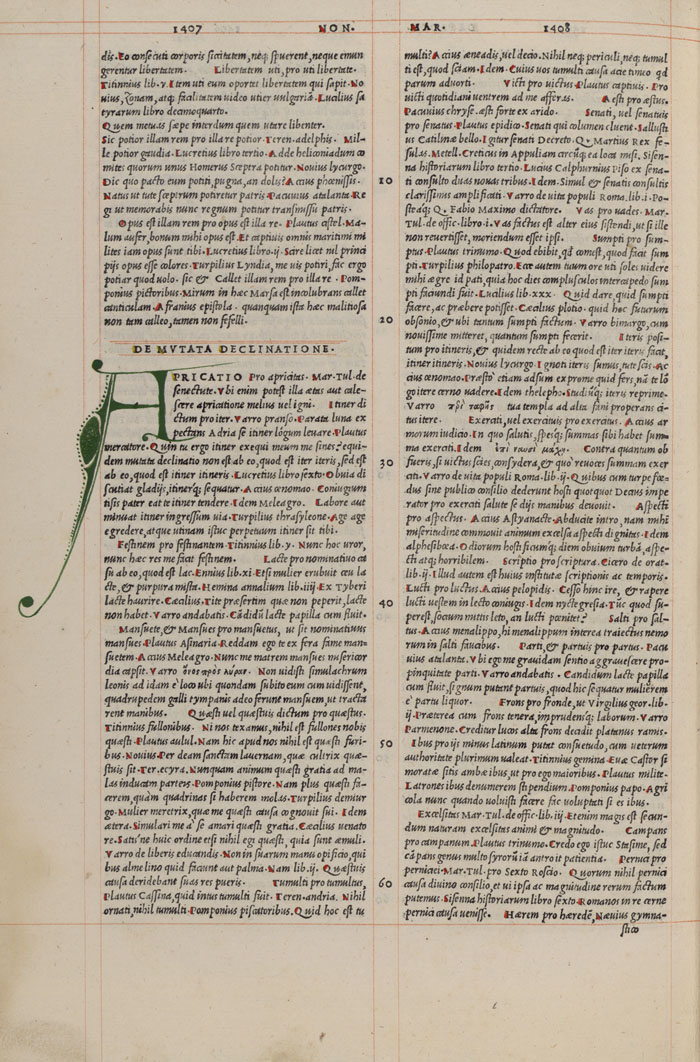 1407 NON. MAR. 1408
dis. Eo consecuti corporis siccitatem, neq; spuerent, neque emun
gerentur libertatem. Libertatem uti, pro uti libertate.
Titinnius lib. y. Item uti eum oportet libertatem qui sapit. No
uius, atq; facilitatem uideo utier uulgaria. Lucilius sa
tyrarum libro decimoquarto.
Quem metuas sæpe interdum quem utere libenter.
Sic potior illam rem pro illare potior. Teren. adelphis. Mil-
le potior gaudia. Lucretius libro tertio. Adde heliconiadum co
mites quorum unus Homerus Scæptra potitur. Nouius lycurgo.
Dic quo pacto eum potiti, pugna, an dolis? Accius phœnissis.
Natus ut tute scæptrum potiretur patris. Pacuuius atalanta. Re
gi ut memorabis nunc regnum potitur transmissu patris.
Opus est illam rem pro opus est illa re. Plautus cistel. Ma-
lum aufer, bonum mihi opus est. Et captiuis omnis maritimi mi
lites iam opus sunt tibi. Lucretius libro. ij. Scire licet nil princi
pijs opus esse colores. Turpilius Lyndia, me uis potiri, fac ergo
potiar quod uolo. sic & Callet illam rem pro illa re. Pom-
ponius pictoribus. Mirum in hæc Marsa est incolubrans callet
cantiunculam. Afranius epistola. quanquam ista hæc malitiosa
non tam calleo, tamen non fefelli.
DE MVTATA DECLINATIONE.
APRICATIO Pro apricitas. Mar. Tul. de
senectute. Vbi enim potest illa ætas aut cale-
scere apricatione melius uel igni. Itiner di
ctum pro iter. Varro pranso. Parata luna ex
pectans Adria se itiner lõgum leuare. Plautus
mercatore. Quin tu ergo itiner exequi meum me sines? equi-
dem mutata declinatio non est ab eo, quod est iter iteris, sed est
ab eo, quod est itiner itineris. Lucretius libro sexto. Obuia di
scutiat gladijs, itinerq; sequatur. Accius œnomao. Coniugum
tisis pater eat te itiner tendere. Idem Meleagro. Labore aut
minuat itiner ingressum uia. Turpilius thrasyleone. Age age
egredere, atque utinam istuc perpetuum itiner sit tibi.
Festinem pro festinantem. Titinnius lib. y. Nunc hoc uror,
nunc hæc res me facit festinem. Lacte pro nominatiuo ca
su ab eo, quod est lac. Ennius lib. xi. Et si mulier erubuit ceu la
cte, & purpura mista. Hemina annalium lib. iiij. Ex Tyberi
lacte haurire. Cæcilius. Tite præsertim quæ non peperit, lacte
non habet. Varro andabatis. Cãdidũ lacte papilla cum fluit.
Mansuete, & Mansues pro mansuetus, ut sit nominatiuus
mansues. Plautus Asinaria. Reddam ego te ex fera fame man-
suetem. Accius Meleagro. Nunc me matrem mansues misericor
dia capsit. Varro ὄνος πρὸς λύραν. Non uidisti simulachrum
leonis ad idam è loco ubi quondam subito eum cum uidissent,
quadrupedem galli tympanis adeo ferunt mansuem, ut tracta
rent manibus. Quæsti uel quæstuis dictum pro quæstus.
Titinnius fullonibus. Ni nos texamus, nihil est fullones nobis
quæsti. Plautus aulul. Nam hic apud nos nihil est quæsti furi-
bus. Nouius. Per deam sanctam lauernam, quæ cultrix quæ-
stuis sit. Ter. ecyra. Nunquam animum quæsti gratia ad ma-
las inducam parteis. Pomponius pistore. Nam plus quæsti fa-
cerem, quàm quadrinas si haberem molas. Turpilius demiur
go. Mulier meretrix, quæ me quæsti causa cognouit sui. Idem
ætera. Simulari me à se amari quæsti gratia. Cæcilius uenato
re. Satis'ne huic ordine etsi nihil egi quæsti, quia sunt æmuli.
Varro de liberis educandis. Non in suarum manu opificio, qui
bus alme lino quid faciunt aut palma. Nam lib. ij. Quæstuis
causa deridebant suas res pueris. Tumulti pro tumultus,
Plautus Cassina, quid intus tumulti fuit. Teren. andria. Nihil
ornati, nihil tumulti. Pomponius piscatoribus. Quid hoc est tu
multi? Accius æneadis, uel decio. Nihil neq; periculi, neq; tumul
ti est, quod sciam. Idem. Cuius uos tumulti causa accie tinuo qd
parum aduorti. Victi pro uictus. Plautus captiuis. Pro
uicti quotidiani uentrem ad me afferas. Aesti pro æstus.
Pacuuius chryse. æsti forte ex arido. Senati, uel senatuis
pro senatus. Plautus epidico. Senati qui columen cluent. Sallusti
us Catilinæ bello. Igitur senati Decreto. Q. Martius Rex fe-
sulas. Metell. Creticus in Appuliam circũq; ea loca misi. Sisen-
na historiarum libro tertio. Lucius Calphurnius Piso ex sena-
10 ti consulto duas nouas tribus. Idem. Simul & senatis consultis
clarissimis amplificati. Varro de uita populi Roma. lib. i. Po-
steaq; Q. Fabio Maximo dictatore. Vas pro uades. Mar.
Tul. de offic. libro. i. Vas factus est alter eius sistendi, ut si ille
non reuertisset, moriendum esset ipsi. Sumpti pro sum-
ptus. Plautus trinumo. Quod ebibit, qd comest, quod facit sum
pti. Turpilius philopatro. Ecce autem tuum ore uti soles uidere
mihi ægre id pati, quia hoc dies complusculos intercapedo sum
pti faciundi fuit. Lucilius lib. xxx. Quid dare, quid sumpti
facere, ac præbere potisset. Cæcilius plotio. quid hoc futurum
20 obsonio, & ubi tantum sumpti factum. Varro bimargo, cum
nouissime mitteret, quantum sumpti fecerit. Iteris posi-
tum pro itineris, & quidem recte ab eo quod est iter iteris facit,
itiner itineris. Nouius lycurgo. Ignoti iteris sumus, tute scis. Ac
cius œnomao. Præsto etiam adsum exprome quid fers, nã te lõ
go itere cerno uadere. Idem thelepho. Studiũq; iteris reprime.
Varro tua templa ad alta fani properans ci-
tus itere. Exerciti, uel exercituis pro exercitus. Accius ar
morum iudicio. In quo salutis, spesq; summas sibi habet sum-
ma exerciti. Idem Contra quantum ob
30 fueris, si uictus scies, consydera, & quò reuoces summam exer
citi. Varro de uita populi Roma. lib. ij. Quibus cum turpe fœ-
dus sine publico consilio dederunt hosti quotquot Decius impe
rator pro exerciti salute se dijs manibus deuouit. Aspecti
pro aspectus. Accius Astyanacte. Abducite intro, nam mihi
miseritudine commouit animum excelsa aspecti dignitas. Idem
alphesibœa. O diorum hostificumq; diem obuium turbã, aspe-
cti atq; horribilem. Scriptio pro scriptura. Cicero de orat-
lib. ij. Illud autem est huius institutæ scriptionis ac temporis.
Lucti pro luctus. Accius pelopidis. Cesso hinc ire, & rapere
40 lucti uestem in lecto coniugis. Idem nyctegresia. Tũc quod su-
perest, socium mittis leto, an lucti pœnitet? Salti pro sal-
tus. Accius menalippo, hi menalippum interea traiectus nemo
rum in salti faucibus. Parti, & partuis pro partus. Pacu
uius atalanta. Vbi ego me grauidam sentio aggrauescere pro-
pinquitate parti. Varro andabatis. Candidum lacte papilla
cum fluit, signum putant partuis, quod hic sequatur mulierem
è partu liquor. Frons pro fronde, ut Virgilius geor. lib-
ij. Præterea cum frons tenera, imprudensq; laborum. Varro
Parmenone. Creditur lucos alta frons decidit platanus ramis.
50 Ibus pro ijs minus latinum putat consuetudo, cum ueterum
authoritate plurimum ualeat. Titinnius gemina. Euæ Castor si
moratæ sitis ambæ ibus, ut pro ego maioribus. Plautus milite.
Latrones ibus denumerem stipendium. Pomponius papo. Agri
cola nunc quando uoluisti facere fac uoluptati si es ibus.
Excelsitas Mar. Tul. de offic. lib. iij. Etenim magis est secun-
dum naturam excelsitas animi & magnitudo. Campans
pro campanum. Plautus trinumo. Credo ego istuc Stasime, sed
cã pans genus multo syrorũ iã antroit patientia. Pernicii pro
perniciei. Mar. Tul. pro Sexto Roscio. Quorum nihil pernici
60 causa diuino consilio, et ui ipsa ac magnitudine rerum factum
putemus. Sisenna historiarum libro sexto. Romanos inre cerne
pernici causa uenisse. Hærem pro hæredẽ, Næuius gymna-
stico